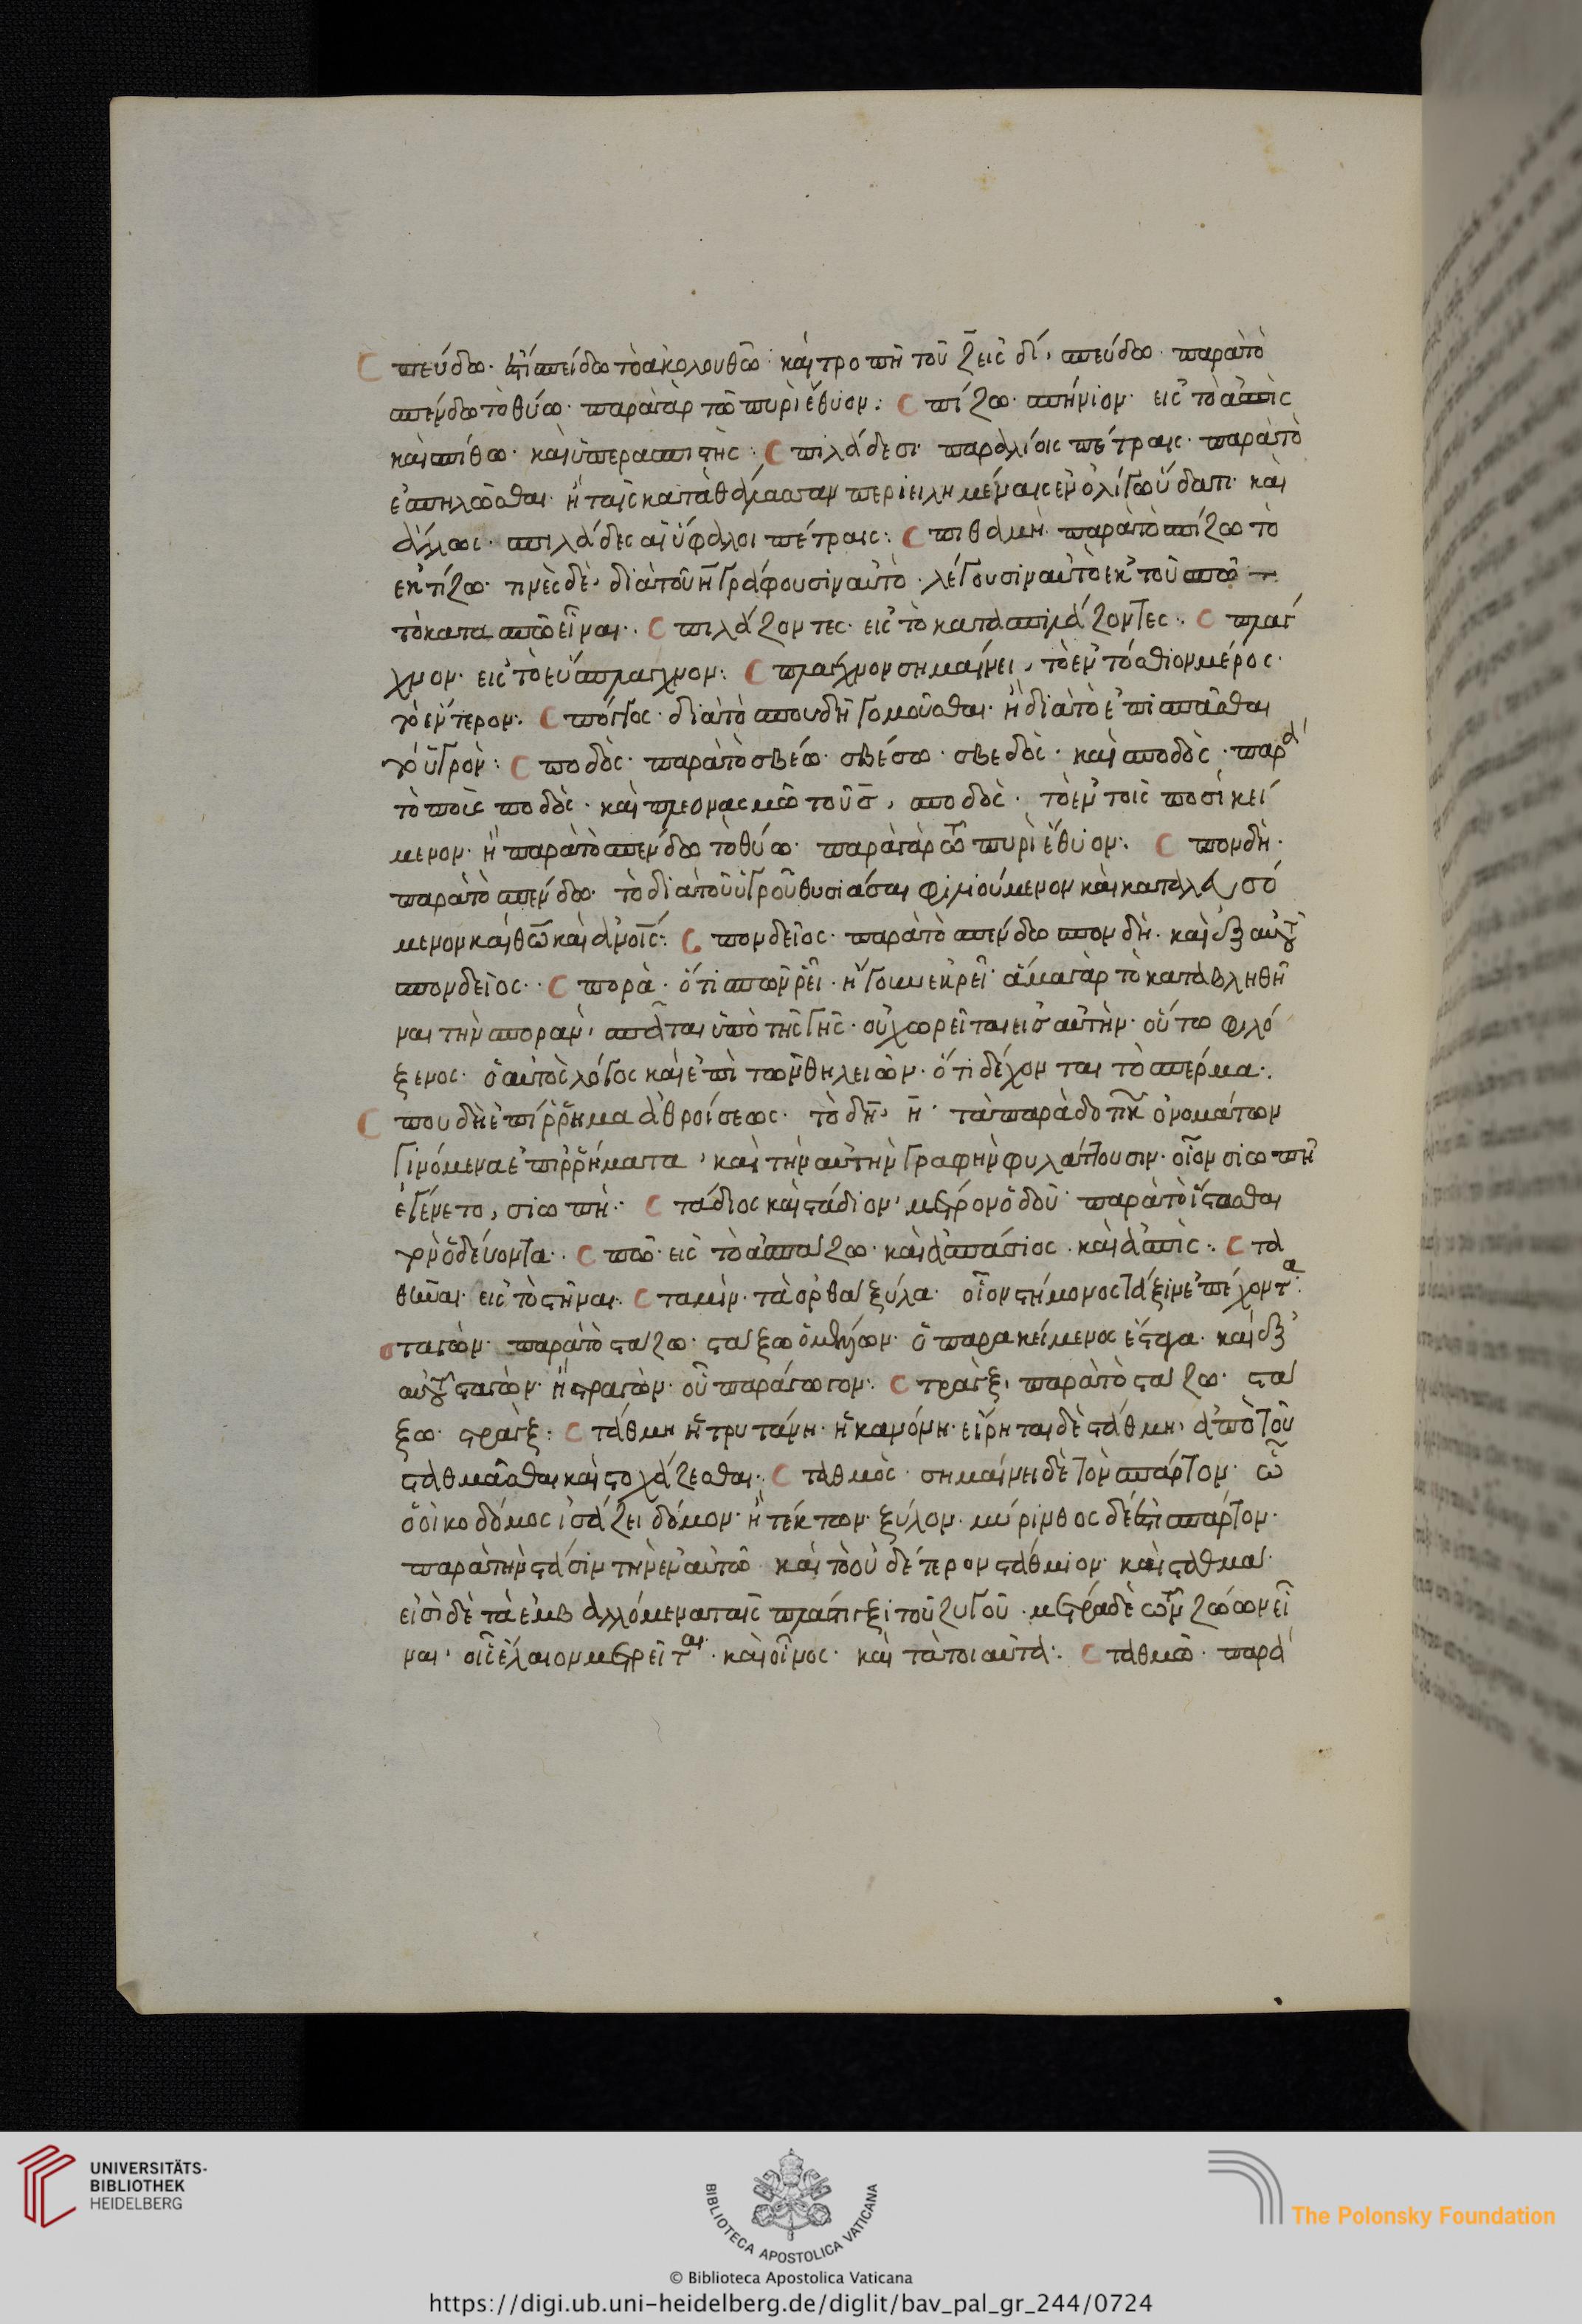 Cπεύδω· ἐπὶ σπεύδω τὸ ἀκολουθῶ· καὶ τροπῆ τοῦ ζ εἰς δ, σπεύδω· παρὰ τὸ
σπένδω τὸ θύω· παρὰ γὰρ τῶ πυρὶ ἔθυον: Cπίζω· σπήνιον· εἰς τὸ ἀσπὶς
καὶ σπίθω· καὶ ὑπερασπιστής: Cπιλάδεσι· παραλίοις πέτραις· παρὰ τὸ
ἐσπηλῶσθαι· ἢ ταῖς κατὰ θάλασσαν περιειλημέναις ἐν ὀλίγω ὕδατι· καὶ
ἄλλως· σπιλάδες αἱ ὕφαλοι πέτραις: Cπιθαμή· παρὰ τὸ σπίζω τὸ
ἐκτίζω· τινὲς δὲ, διὰ τοῦ η γράφουσιν αὐτό· λέγουσιν αὐτὸ ἐκ τοῦ σπῶ
τὸ κατασπῶ εἶναι: Cπιλάζοντες· εἰς τὸ κατασπιλάζοντες: Cπλάγ
χνον· εἰς τὸ εὔσπλαγχνον: Cπλάγχνον σημαίνει, τὸ ἐντόσθιον μέρος·
τὸ ἔντερον: Cπόγγος· διὰ τὸ σπουδῆ γομοῦσθαι· ἢ διὰ τὸ ἐπισπᾶσθαι
τὸ ὑγρόν: Cποδὸς· παρὰ τὸ σβέω· σβέσω· σβεδὸς· καὶ σποδὸς· παρὰ
τὸ ποῖς ποδὸς· καὶ πλεονασμῶ τοῦ σ, σποδὸς· τὸ ἐν τοῖς ποσὶ κεί
μενον· ἢ παρὰ τὸ σπένδω τὸ θύω· παρὰ γὰρ τῶ πυρὶ ἔθυον: Cπονδὴ·
παρὰ τὸ σπένδω· τὸ διὰ τοῦ ὑγροῦ θυσιάσαι φιλιούμενον καὶ καταλασό
μενον καὶ θεῶ καὶ ἀνοις: Cπονδεῖος· παρὰ τὸ σπένδω σπονδὴ· καὶ ἐξ αὐτοῦ
σπονδεῖος: Cπορὰ· ὅτι σπῶν ῥεῖ· ἤγουν ἐκρεῖ· ἅμα γὰρ τὸ καταβληθῆ
ναι τὴν σπορὰν, σπᾶται ὑπὸ τῆς γῆς· οὐ χωρεῖται εἰς αὐτὴν· οὕτω φιλό
ξενος· ὁ αὐτὸς λόγος καὶ ἐπὶ τῶν θηλειῶν· ὅτι δέχονται τὸ σπέρμα:
Cπουδῆ ἐπίρρημα ἀθροίσεως· τὸ δῆ, η· τὰ παρὰ δοτικ ὀνομάτων
γινόμενα ἐπιρρήματα, καὶ τὴν αὐτὴν γραφὴν φυλάττουσιν· οἷον σιωπῆ
ἐγένετο, σιωπή: Cτάδιος καὶ στάδιον, μέτρον ὁδοῦ· παρὰ τὸ ἵστασθαι
τὸν ὁδεύοντα: Cπῶ· εἰς τὸ ἀσπάζω· καὶ ἀσπάσιος· καὶ ἀσπὶς: Cτα
θῆναι· εἰς τὸ στῆναι: Cταμίν· τὰ ὀρθὰ ξύλα· οἷον στήμονος τάξιν ἐπέχοντα:
σταγὼν· παρὰ τὸ στάζω· στάξω ὁ μέλλων· ὁ παρακείμενος ἔσταχα· καὶ ἐξ
αὐτοῦ σταγών· ἢ στραγὼν· οὗ παράγωγον: Cτράγξ, παρὰ τὸ στάζω· στά
ξω· στράγξ: Cτάθμη ἢ τρυτάνη· ἢ κανόνη· εἴρηται δὲ στάθμη, ἀπὸ τοῦ
σταθμᾶσθαι καὶ στοχάζεσθαι: Cταθμὸς· σημαίνει δὲ τὸν σπάρτον· ὧ
ὁ οἰκοδόμος ἰσάζει δόμον· ἢ τέκτων ξύλον· μύρινθος δὲ ἐπὶ σπάρτον·
παρὰ τὴν στάσιν τὴν ἐν αὐτῶ· καὶ τὸ οὐδέτερον στάθμιον· καὶ σταθμά·
εἰσὶ δὲ τὰ ἐμβαλλόμενα ταῖς πλάστιγξι τοῦ ζυγοῦ· μέτρα δὲ τῶν ζώων εἶ
ναι, οἷς ἔλαιον μετρεῖται· καὶ οἶνος· καὶ τὰ τοιαῦτα: Cταθμῶ· παρὰ
UNIVERSITÄTS-
BIBLIOTHEK
HEIDELBERG
BIBLIOTECA APOSTOLICA VATICANA
The Polonsky Foundation
© Biblioteca Apostolica Vaticana
https://digi.ub.uni-heidelberg.de/diglit/bav_pal_gr_244/0724